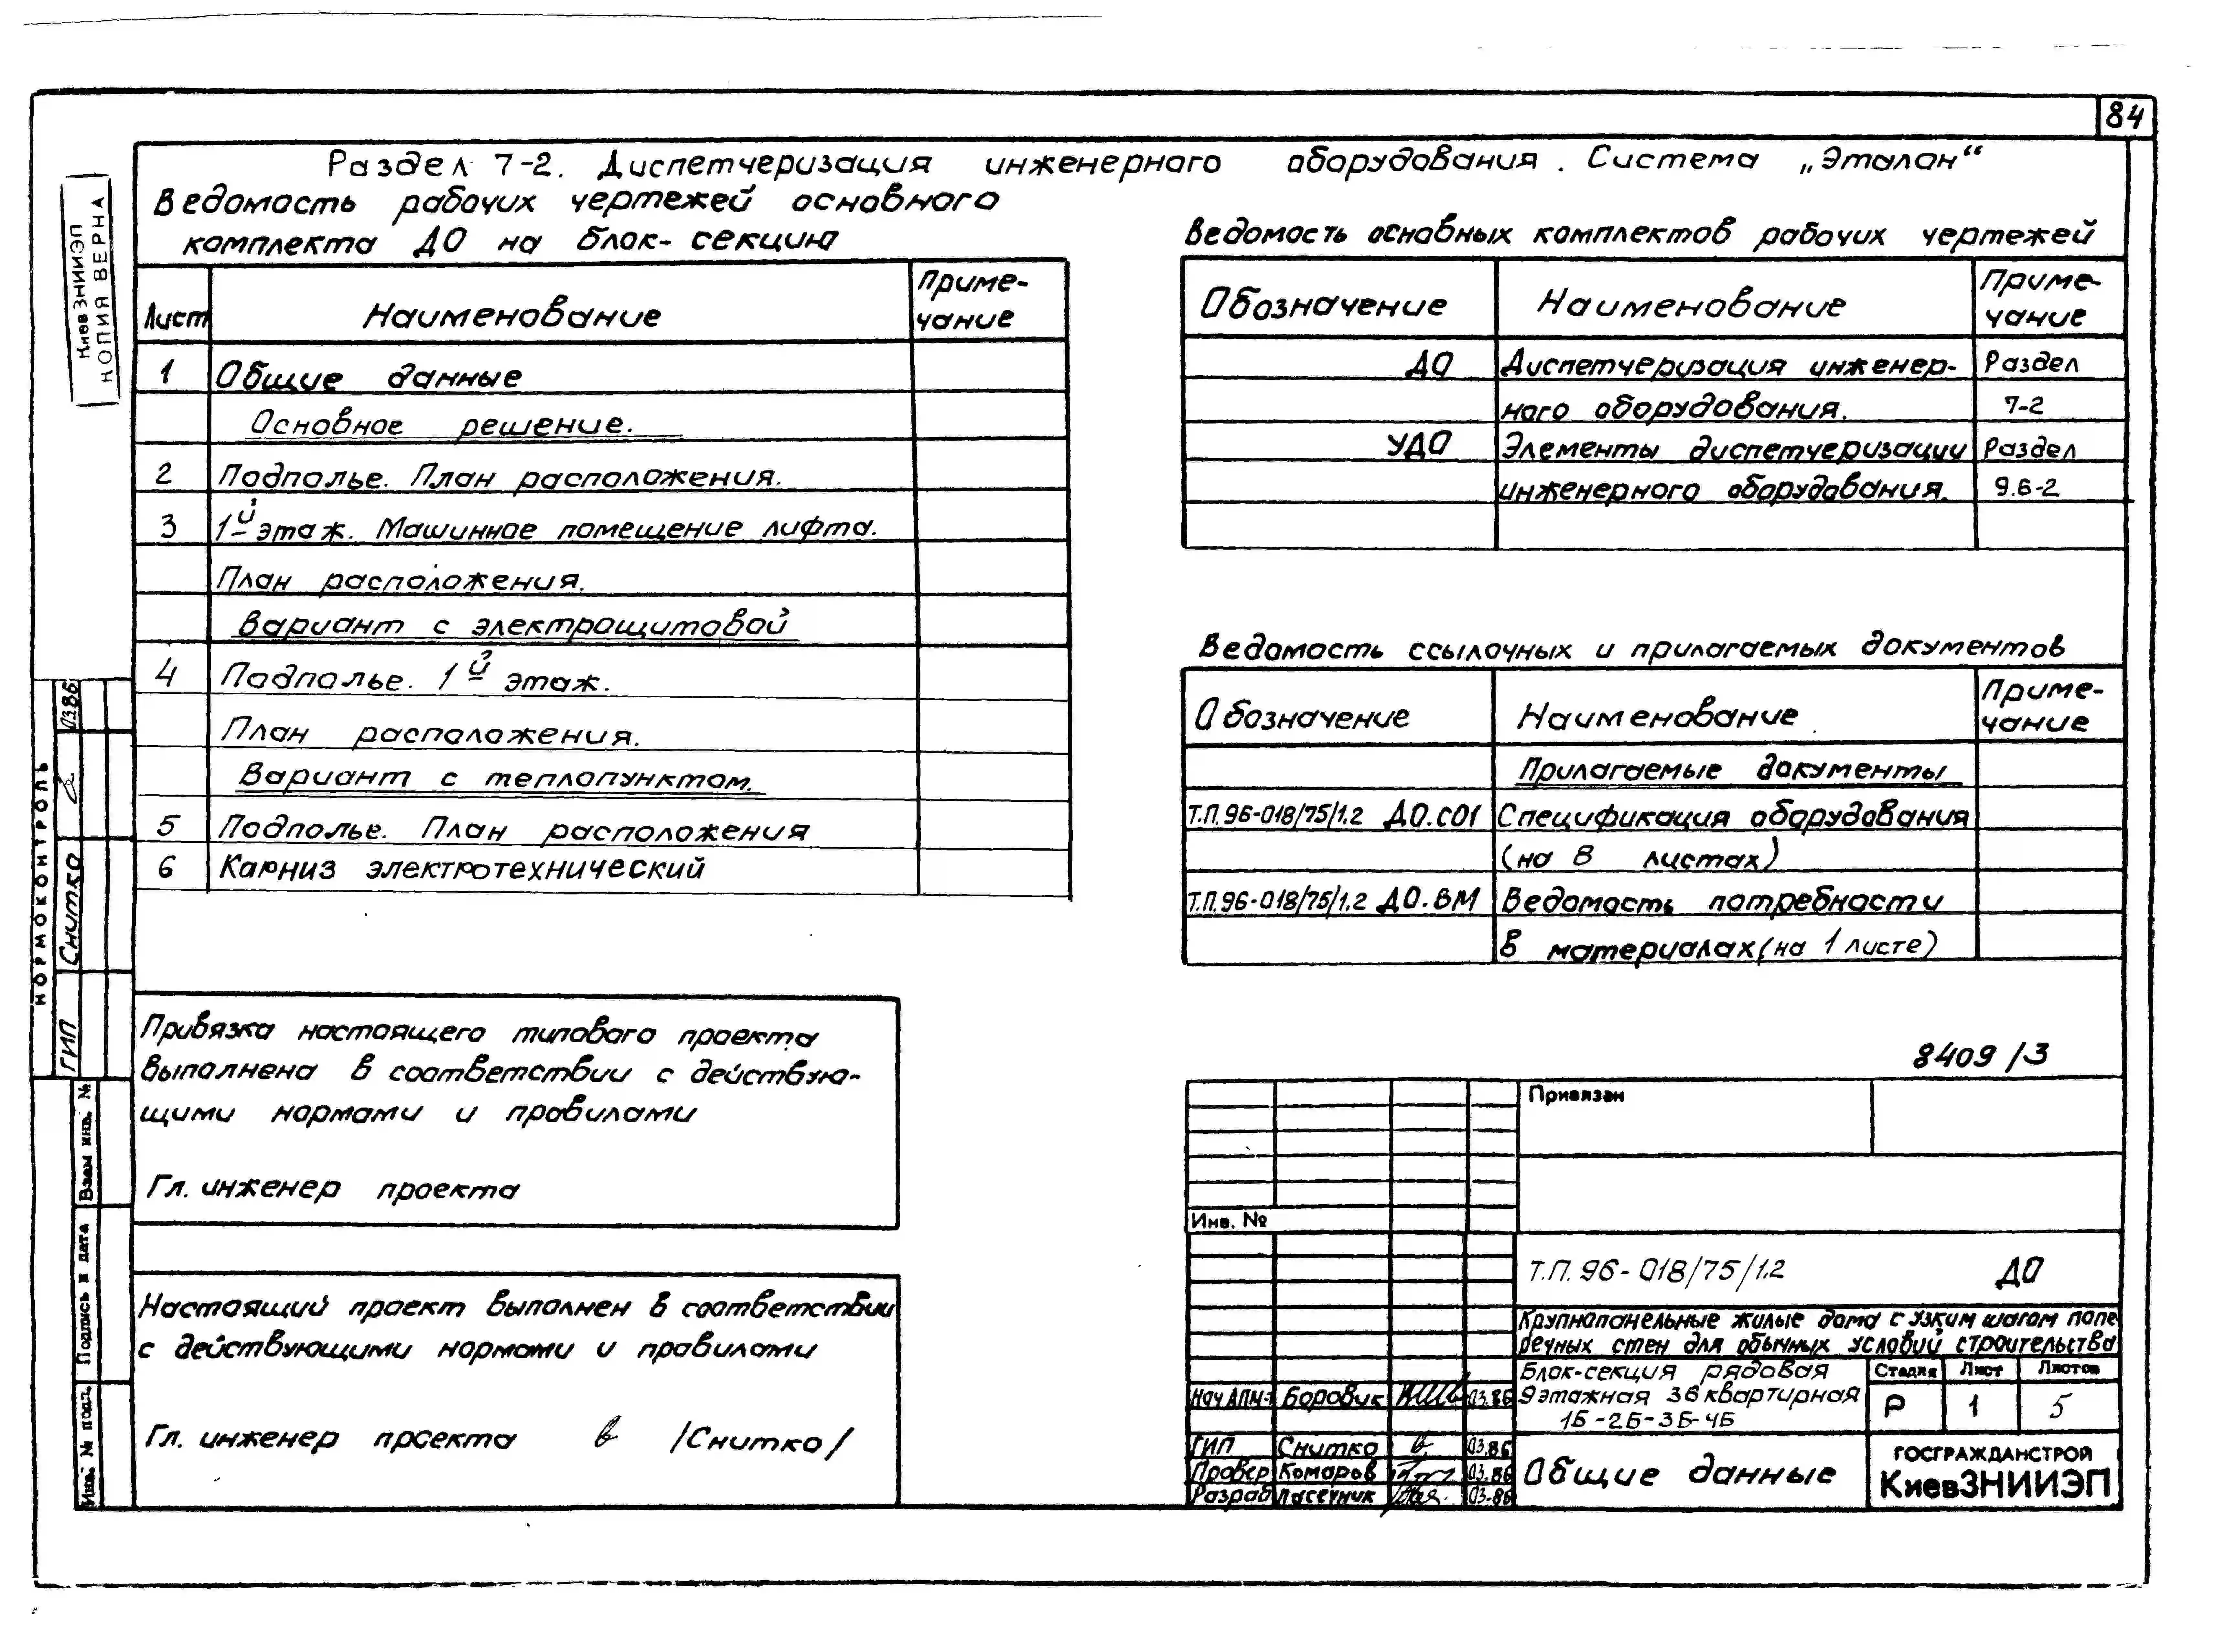 84
Раздел 7-2. Диспетчеризация инженерного оборудования. Система „Эталан“
Ведомость рабочих чертежей основного
комплекта ДО на блок-секцию
Лист Наименование Приме-
чание
1 Общие данные
Основное решение.
2 Подполье. План расположения.
3 1й этаж. Машинное помещение лифта.
План расположения.
Вариант с электрощитовой
4 Подполье. 1й этаж.
План расположения.
Вариант с теплопунктом.
5 Подполье. План расположения
6 Карниз электротехнический
Ведомость основных комплектов рабочих чертежей
Обозначение Наименование Приме-
чание
ДО Диспетчеризация инженер- Раздел
ного оборудования. 7-2
УДО Элементы диспетчеризации Раздел
инженерного оборудования. 9.6-2
Ведомость ссылочных и прилагаемых документов
Обозначение Наименование Приме-
чание
Прилагаемые документы
Т.П.96-018/75/1.2 ДО.СО1 Спецификация оборудования
(на 8 листах)
Т.П.96-018/75/1.2 ДО.ВМ Ведомость потребности
в материалах (на 1 листе)
Привязка настоящего типового проекта
выполнена в соответствии с действую-
щими нормами и правилами
Гл. инженер проекта
Настоящий проект выполнен в соответствии
с действующими нормами и правилами
Гл. инженер проекта /Снитко/
8409/3
Привязан
Инв. №
Т.П. 96-018/75/1.2 ДО
Крупнопанельные жилые дома с узким шагом попе
речных стен для обычных условий строительства
Блок-секция рядовая
9этажная 36квартирная
1Б-2Б-3Б-4Б
Стадия Лист Листов
Р 1 5
Нач АПМ-1 Боровик 03.86
ГИП Снитко 03.86
Провер Комаров 03.86
Разраб Пасечник 03.86
Общие данные
ГОСГРАЖДАНСТРОЙ
КиевЗНИИЭП
КиевЗНИИЭП
КОПИЯ ВЕРНА
НОРМОКОНТРОЛЬ
ГИП Снитко 03.86
Взам инв. №
Подпись и дата
Инв. № подл.